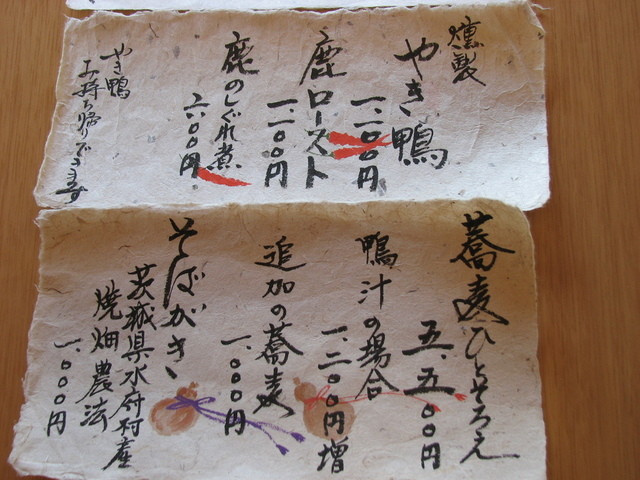 燻製
やき鴨
一、二〇〇円
鹿ロースト
一、二〇〇円
鹿のしぐれ煮
六〇〇円
やき鴨
お持ち帰りできます
蕎麦ひとそろえ
五、五〇〇円
鴨汁の場合
一、二〇〇円増
追加の蕎麦
一、〇〇〇円
そばがき
茨城県水府村産
焼畑農法
一、〇〇〇円